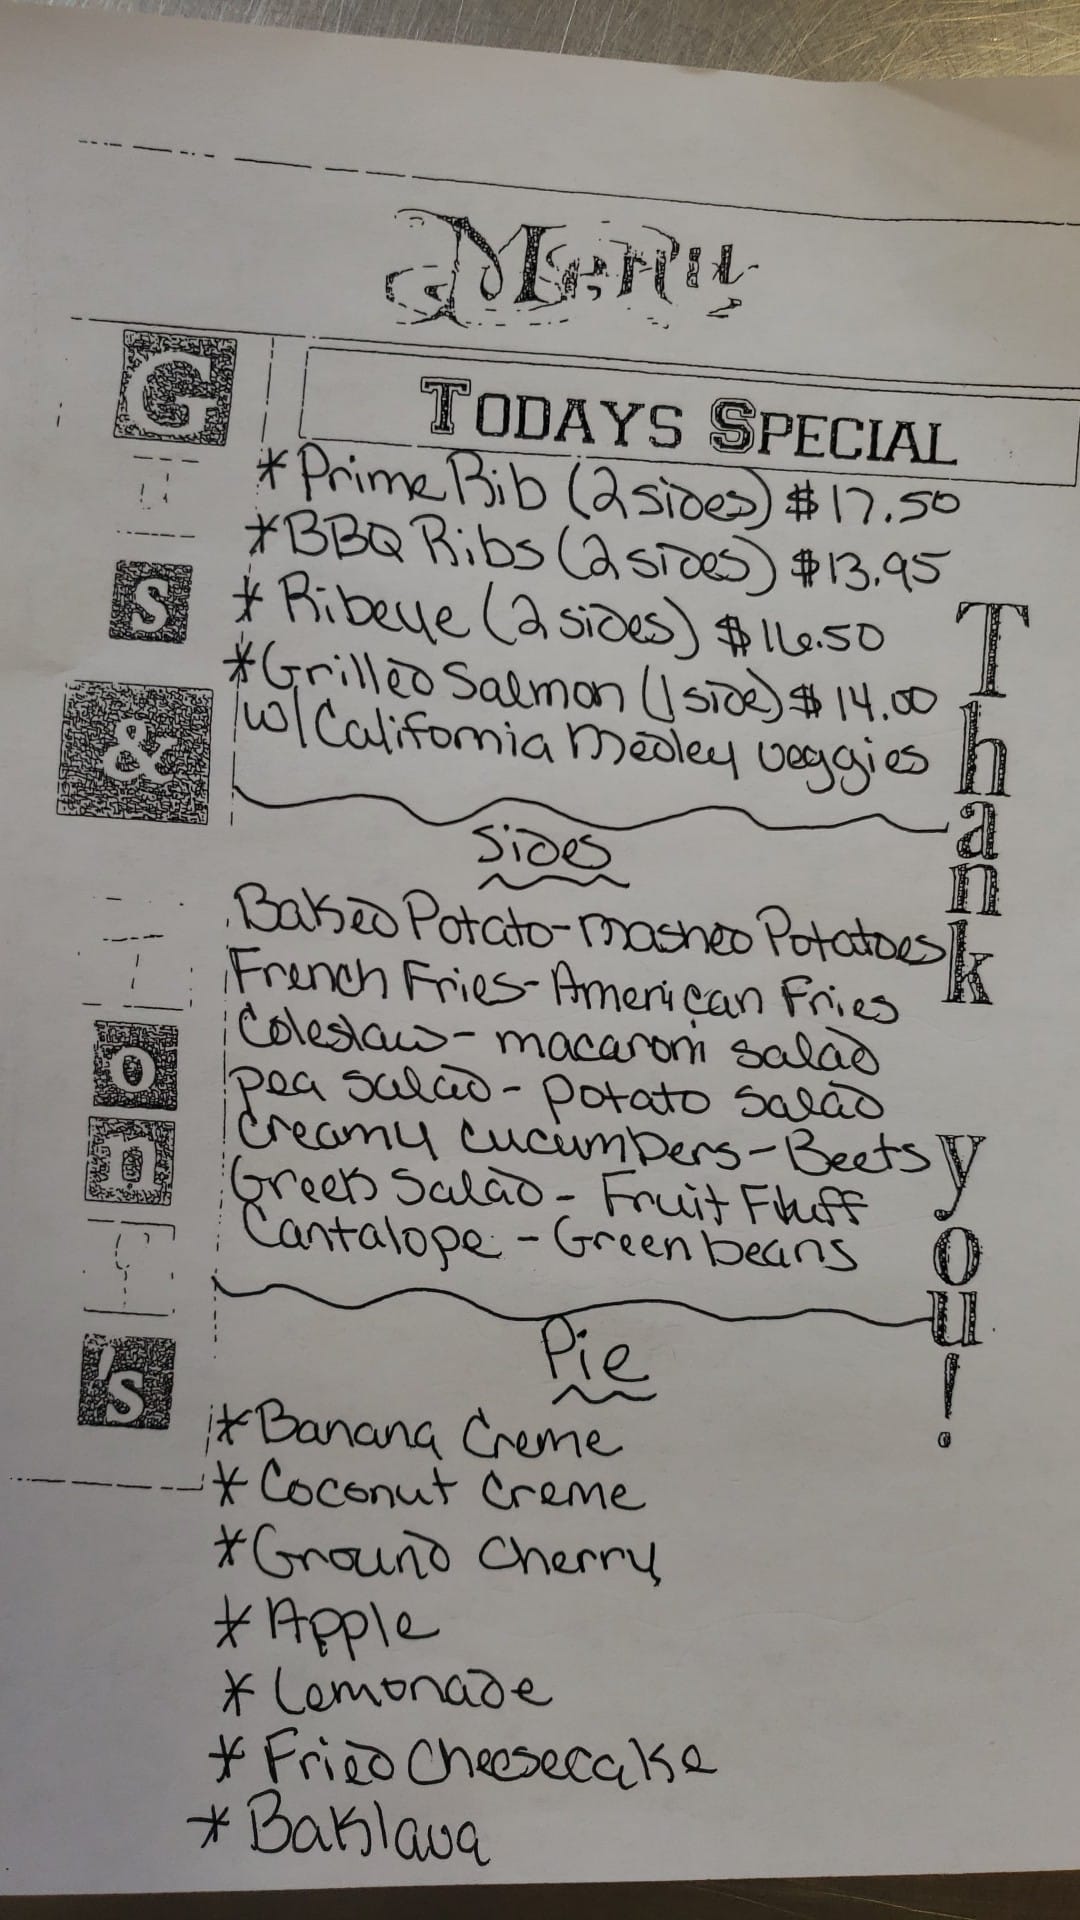 Menu
G
s
&
o
n
's
TODAYS SPECIAL
* Prime Rib (2 sides) $17.50
* BBQ Ribs (2 sides) $13.95
* Ribeye (2 sides) $16.50
* Grilled Salmon (1 side) $14.00
w/ California Medley veggies
Sides
Baked Potato - mashed Potatoes
French Fries - American Fries
Coleslaw - macaroni salad
pea salad - potato salad
Creamy cucumbers - Beets
Greek Salad - Fruit Fluff
Cantalope - Green beans
Pie
* Banana Creme
* Coconut Creme
* Ground Cherry
* Apple
* Lemonade
* Fried Cheesecake
* Baklava
Thank you!